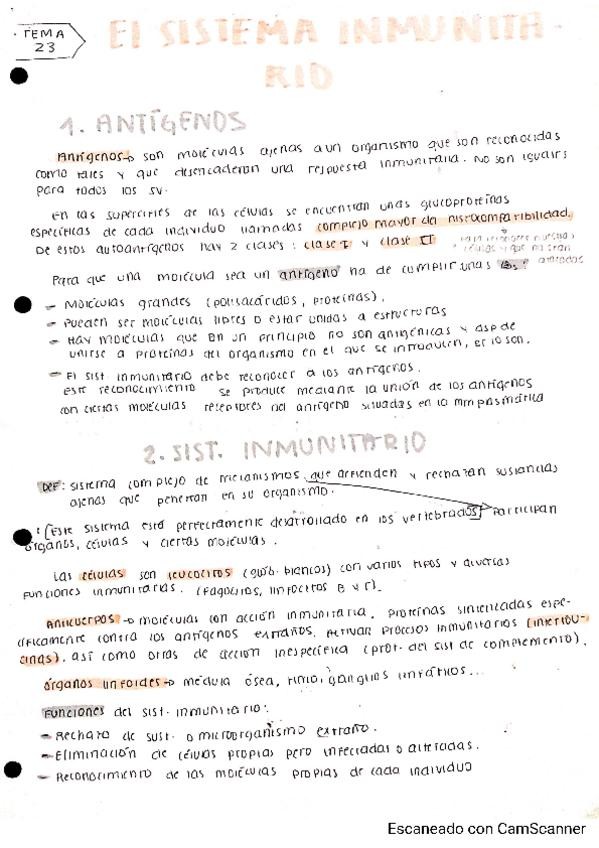 TEMA
23
El SISTEMA INMUNITA-
RIO
1. ANTÍGENOS
Antígenos → son moléculas ajenas a un organismo que son reconocidas
como tales y que desencadenan una respuesta inmunitaria. No son iguales
para todos los sv.
En las superficies de las células se encuentran unas glucoproteínas
específicas de cada individuo llamadas complejo mayor de histocompatibilidad.
De estos autoantígenos hay 2 clases: clase I y clase II
para
células y que no sean
Para que una molécula sea un antígeno ha de cumplir unas
- Moléculas grandes (polisacáridos, proteínas).
- Pueden ser moléculas libres o estar unidas a estructuras
- Hay moléculas que en un principio no son antigénicas y desp de
unirse a proteínas del organismo en el que se introducen, sí lo son.
- El sist. inmunitario debe reconocer a los antígenos.
este reconocimiento se produce mediante la unión de los antígenos
con ciertas moléculas receptores del antígeno situadas en la mm plasmática
2. SIST. INMUNITARIO
DEF: sistema complejo de mecanismos que defienden y rechazan sustancias
ajenas que penetran en su organismo.
: [Este sistema está perfectamente desarrollado en los vertebrados] Participan
órganos, células y ciertas moléculas.
Las células son leucocitos (glób. blancos) con varios tipos y diversas
funciones inmunitarias. (Fagocitos, linfocitos B y T).
Anticuerpos → moléculas con acción inmunitaria. Proteínas sintetizadas espe-
cíficamente contra los antígenos extraños. Activar procesos inmunitarios (interleu-
cinas), así como otras de acción inespecífica (prot. del sist de complemento).
Órganos linfoides → médula ósea, timo, ganglios linfáticos...
Funciones del sist. inmunitario:
- Rechazo de sust. o microorganismo extraño.
- Eliminación de células propias pero infectadas o alteradas.
- Reconocimiento de las moléculas propias de cada individuo
Escaneado con CamScanner